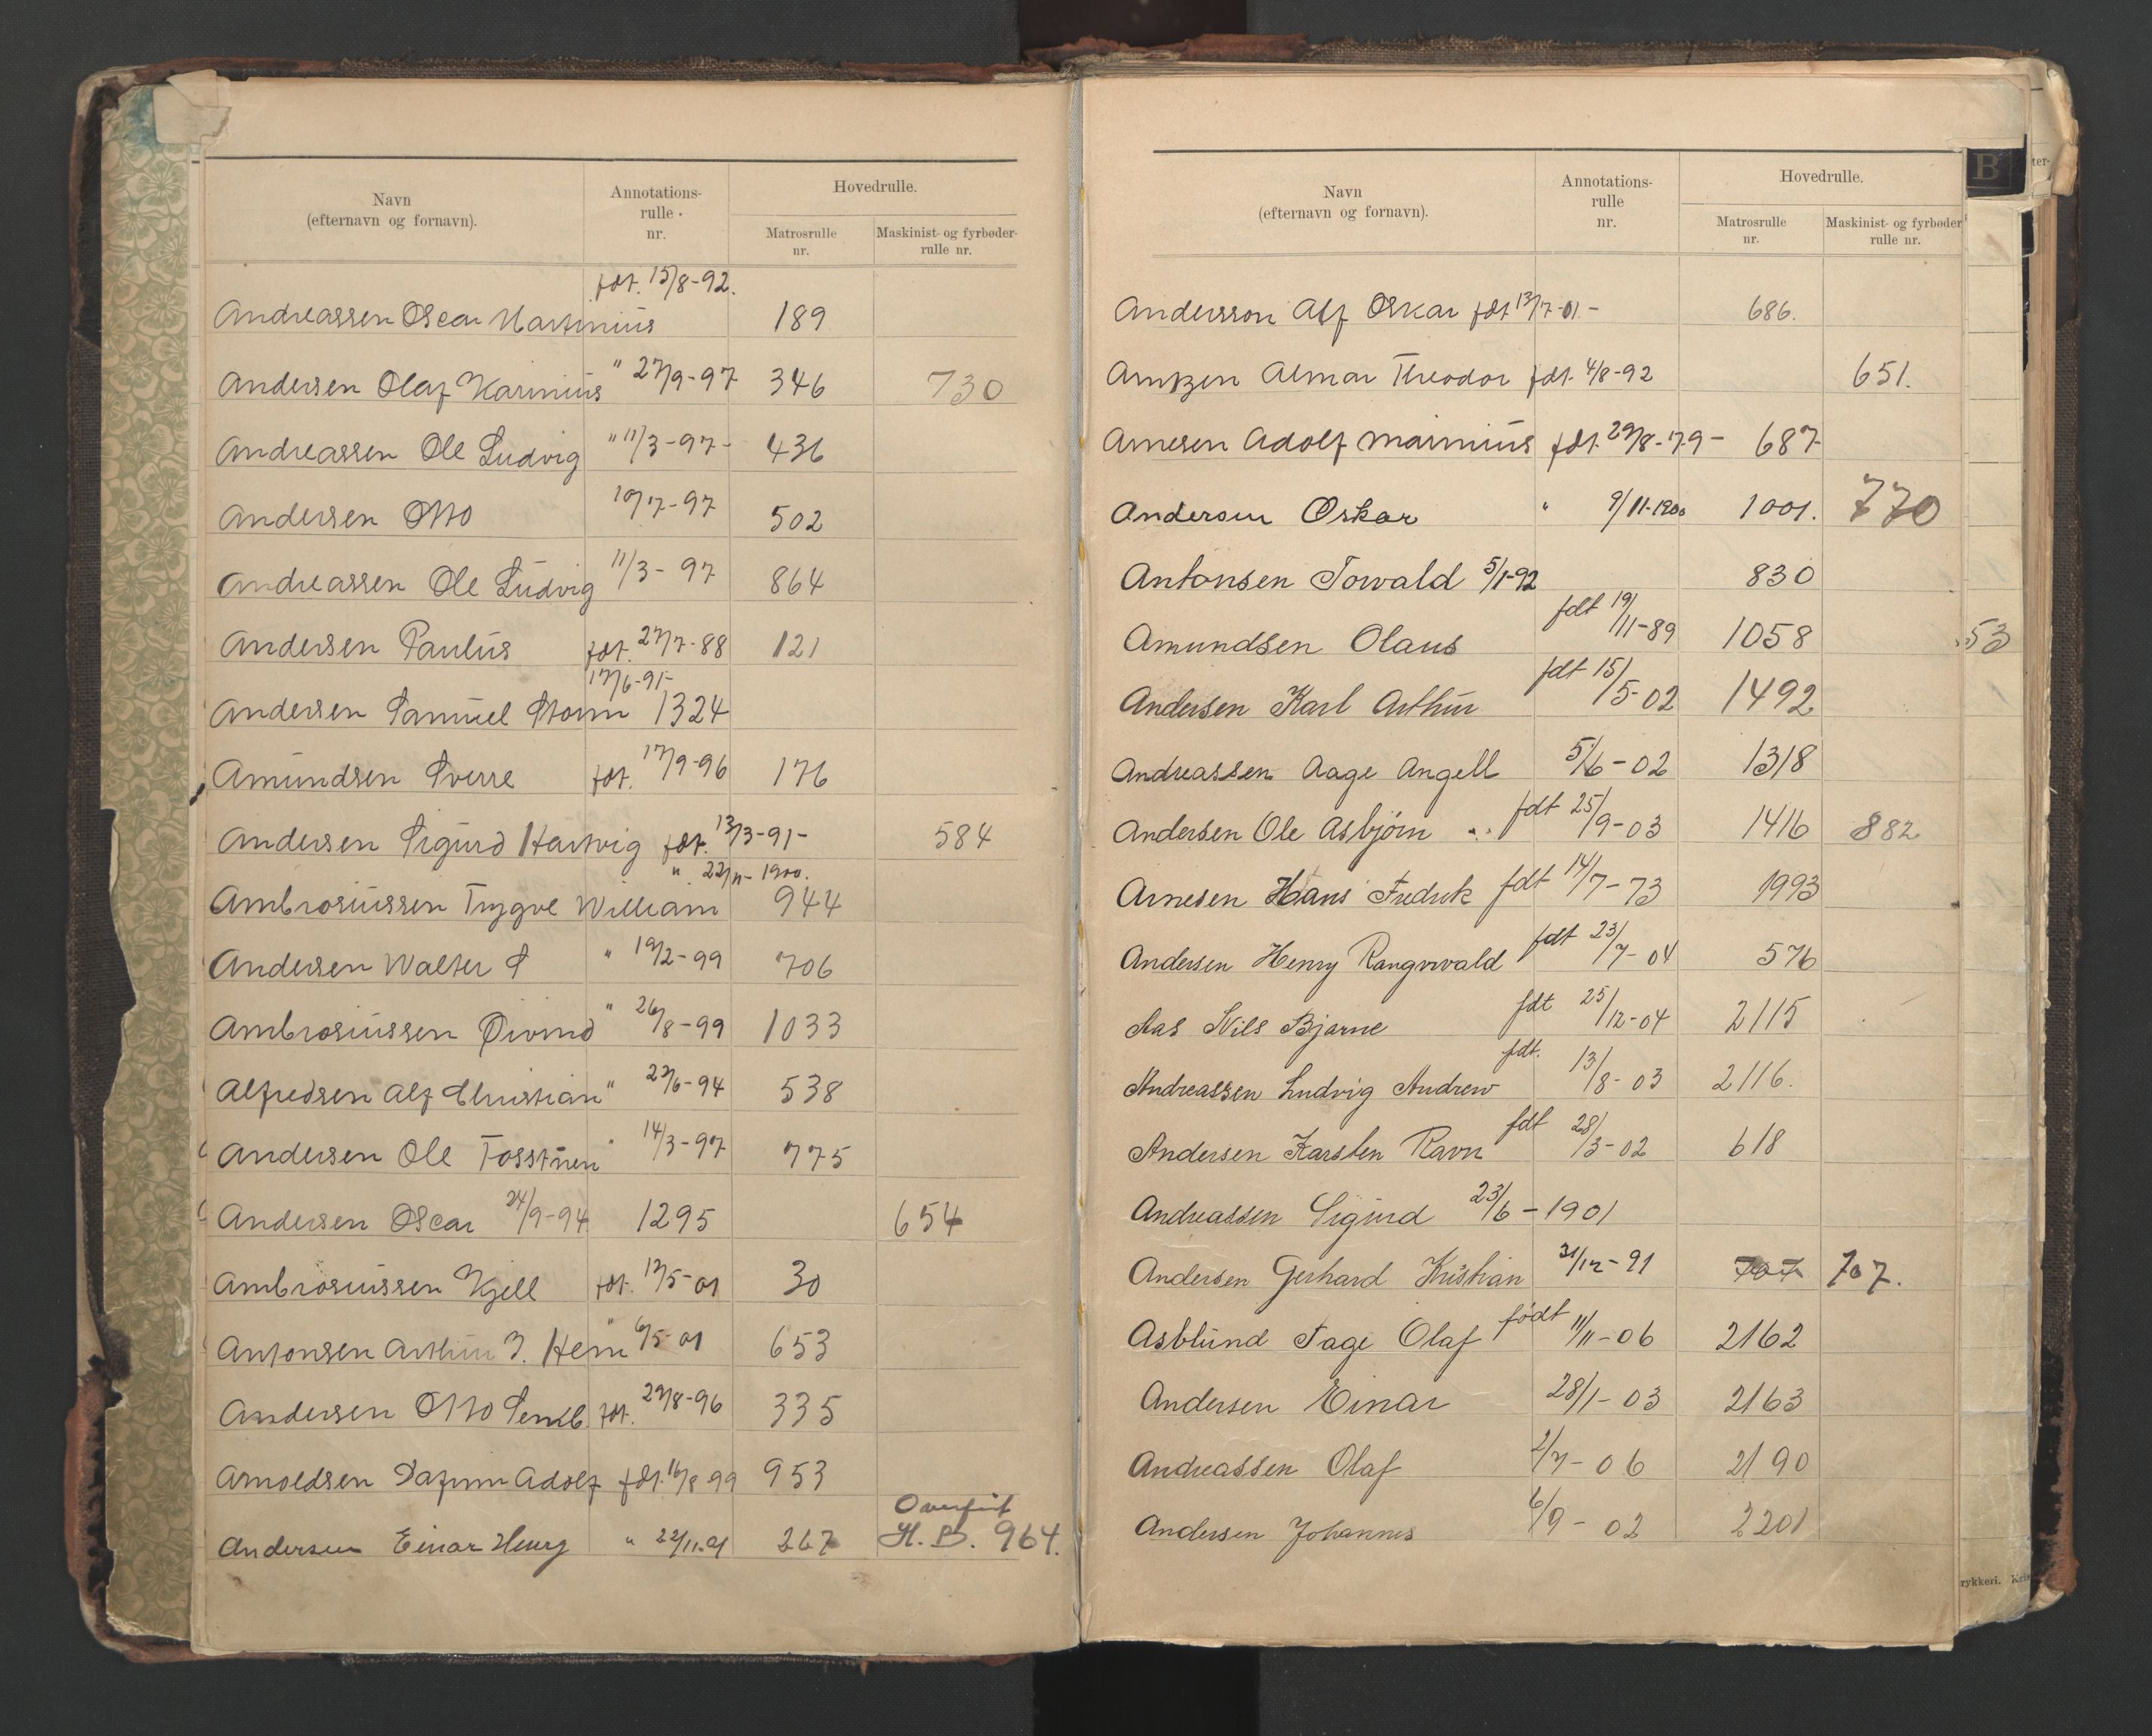 Navn
(efternavn og fornavn).
Annotations-
rulle
nr.
Hovedrulle.
Matrosrulle
nr.
Maskinist- og fyrbøder-
rulle nr.
fdt. 15/8-92.
Andreassen Oscar Martinius 189
Andersen Olaf Karinius " 27/9-97 346 730
Andreassen Ole Ludvig " 11/3-97- 436
Andersen Otto 10/7-97 502
Andreassen Ole Ludvig 11/3-97 864
Andersen Paulus fdt. 27/7-88 121
17/6-91-
Andersen Samuel Storm 1324
Amundsen Sverre fdt. 17/9-96 176
Andersen Sigurd Hartvig fdt. 13/3-91- 584
" 22/11-1900.
Ambrosiussen Trygve William 944
Andersen Walter S " 19/2-99 706
Ambrosiussen Øivind " 26/8-99 1033
Alfredsen Alf Christian " 22/6-94 538
Andersen Ole " 14/3-97 775
Andersen Oscar 24/9-94 1295 654
Ambrosiussen Kjell fdt. 12/5-01 30
Antonsen Arthur J. " 6/5-01 653
Andersen Otto fdt. 29/8-96 335
Arnoldsen Dafinn Adolf fdt. 16/8 99 953
Overført
Andersen Einar Henry " 22/11.01 267 H.B. 964.
Navn
(efternavn og fornavn).
Annotations-
rulle
nr.
Hovedrulle.
Matrosrulle
nr.
Maskinist- og fyrbøder
rulle nr.
B
ter-
Andersson Alf Oskar fdt 13/7-01- 686.
Arntzen Almar Theodor fdt. 4/8-92 651.
Arnesen Adolf Marinius fdt. 29/8-179- 687
Andersen Oskar " 9/11-1900 1001. 770
Antonsen Torvald 5/1-92 830
Amundsen Olaus fdt 19/11-89 1058 53
Andersen Karl Arthur fdt 15/5-02 1492
Andreassen Aage Angell 5/6-02 1318
Andersen Ole Asbjørn fdt 25/9-03 1416 882
Arnesen Hans Fredrik fdt 14/7-73 1993
Andersen Henry Rangvvald fdt 23/7-04 576
Aas Nils Bjarne fdt 25/12-04 2115
Andreassen Ludvig Andrew fdt. 13/8-03 2116.
Andersen Karsten Ravn fdt 28/3-02 618
Andreassen Sigurd 23/6-1901
Andersen Gerhard Kristian 31/12-91 707 707.
Asblund Tage Olaf født 11/11-06 2162
Andersen Einar 28/1-03 2163
Andreassen Olaf 2/7-06 2190
Andersen Johannes 6/9-02 2201
rykkeri. Kris